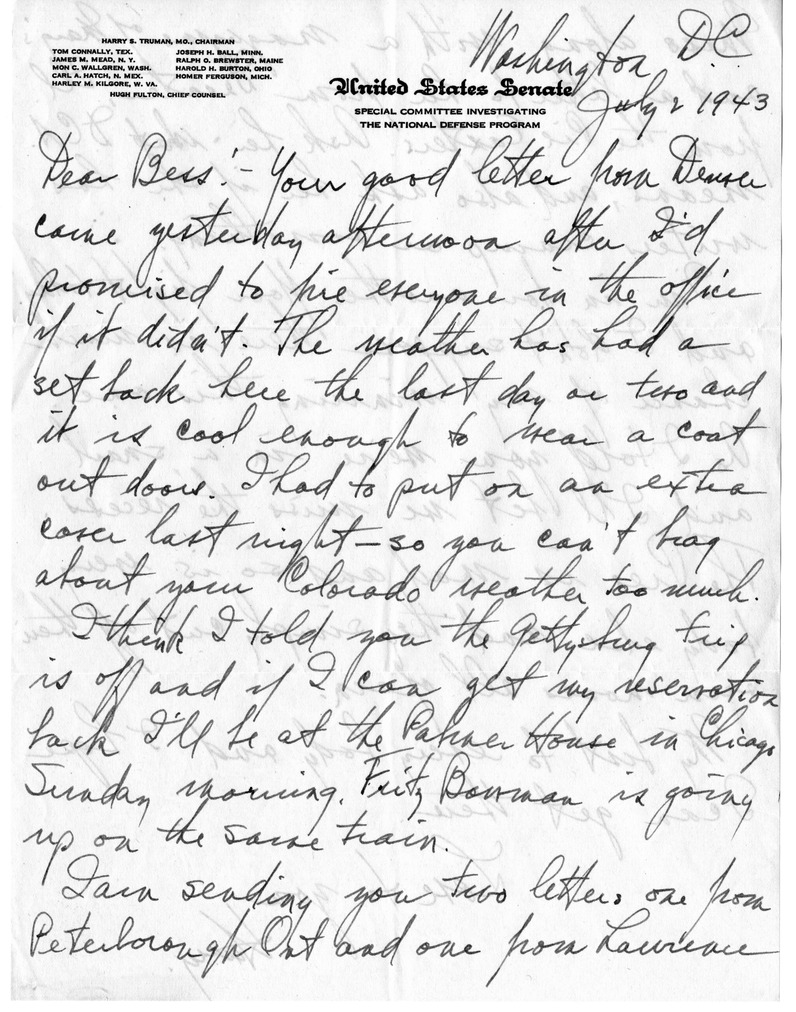 HARRY S. TRUMAN, MO., CHAIRMAN
TOM CONNALLY, TEX.
JAMES M. MEAD, N. Y.
MON C. WALLGREN, WASH.
CARL A. HATCH, N. MEX.
HARLEY M. KILGORE, W. VA.
JOSEPH H. BALL, MINN.
RALPH O. BREWSTER, MAINE
HAROLD H. BURTON, OHIO
HOMER FERGUSON, MICH.
HUGH FULTON, CHIEF COUNSEL
Washington, D.C.
United States Senate
July 2 1943
SPECIAL COMMITTEE INVESTIGATING
THE NATIONAL DEFENSE PROGRAM
Dear Bess:- Your good letter from Denver
came yesterday afternoon after I'd
promised to fire everyone in the office
if it didn't. The weather has had a
set back here the last day or two and
it is cool enough to wear a coat
out doors. I had to put on an extra
cover last night - so you can't brag
about your Colorado weather too much.
I think I told you the Gettysburg trip
is off and if I can get my reservation
back I'll be at the Palmer House in Chicago
Sunday morning. Fritz Bowman is going
up on the same train.
I am sending you two letters one from
Peterborough Ont and one from Lawrence